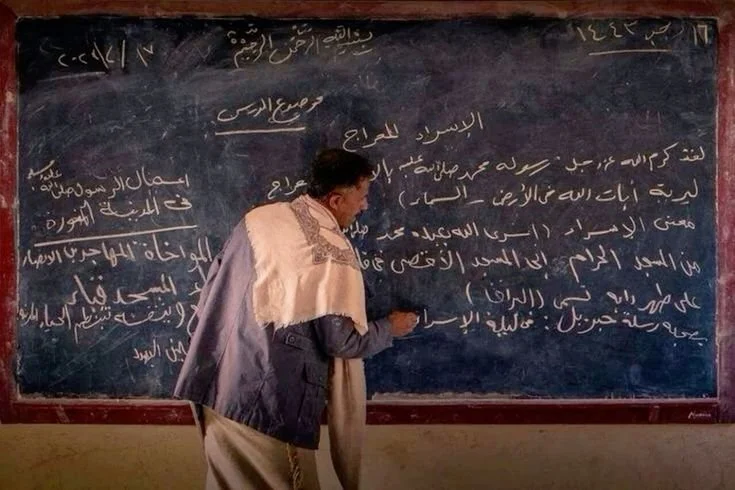 بسم الله الرحمن الرحيم
١٦ رجب ١٤٤٣
موضوع الدرس
الإسراء المعراج
لقد كرم الله عز وجل رسوله محمد صلى الله عليه
ليرية آيات الله في الأرض - السماء)
معنى الإسراء (أسرى الله بعبده محمد
من المسجد الحرام إلى المسجد الأقصى
على ظهر دابه تسمى (البراق)
بصحبه رسلة جبريل: في ليلة الإسراء
أعمال الرسول صلى الله عليه وسلم
في المدينة المنورة
المواخاة المهاجرين الأنصار
المسجد قباء
تنظم الحياة